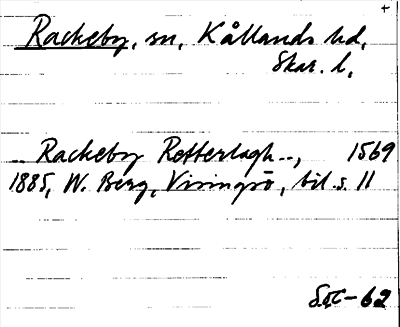 +
Rackeby, sn, Kållands hd,
Skar. l,
.. Rackeby Retterlagh..., 1569
1885, W. Berg, Visingsö, bil. s. 11
SOC-62